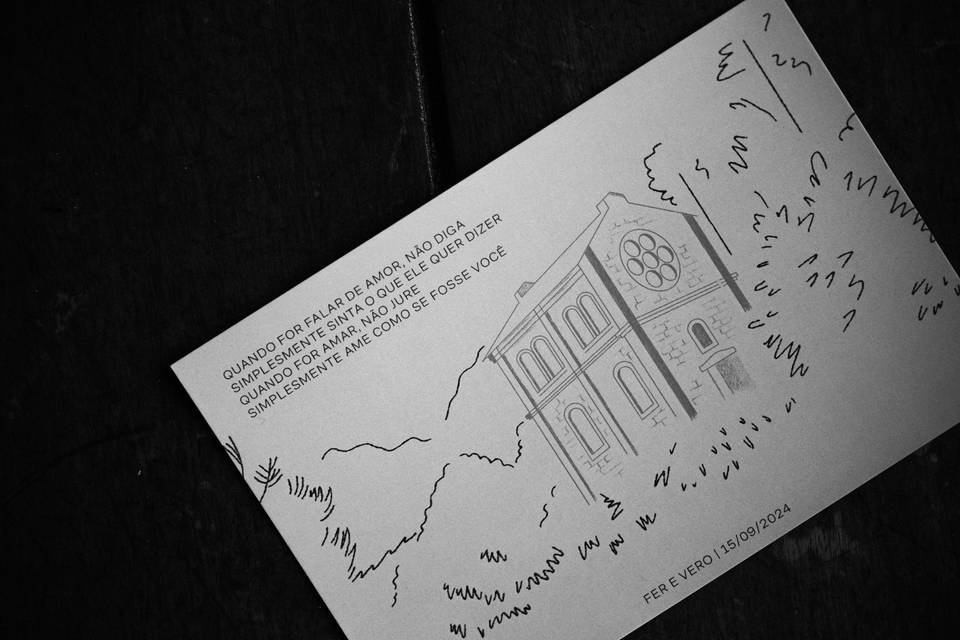 QUANDO FOR FALAR DE AMOR, NÃO DIGA
SIMPLESMENTE SINTA O QUE ELE QUER DIZER
QUANDO FOR AMAR, NÃO JURE
SIMPLESMENTE AME COMO SE FOSSE VOCÊ
FER E VERO | 15/09/2024